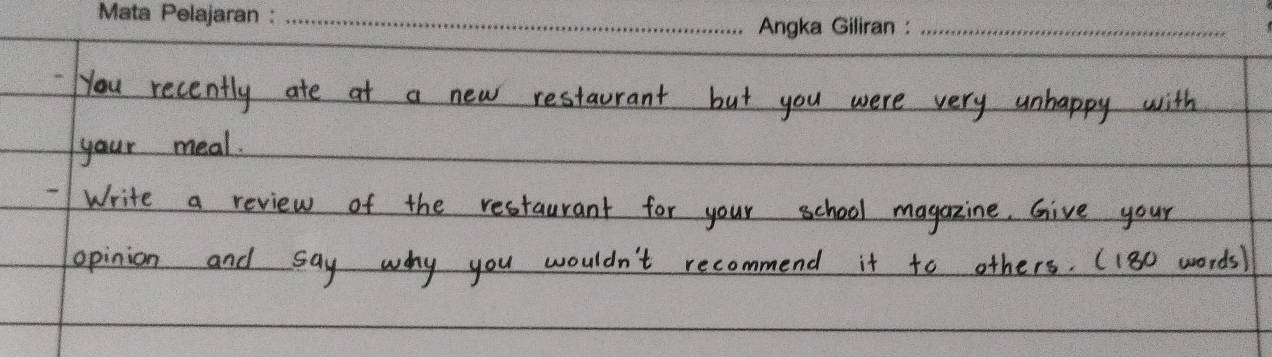 Mata Pelajaran : ............................................................ Angka Giliran : ........................................
- You recently ate at a new restaurant but you were very unhappy with
your meal.
- Write a review of the restaurant for your school magazine. Give your
opinion and say why you wouldn't recommend it to others. (180 words)